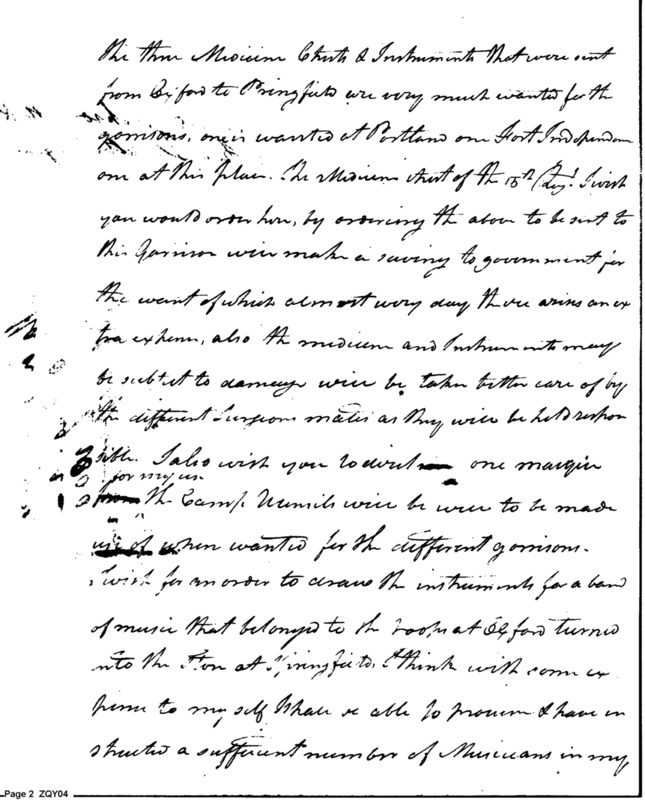 The three Medicine Chests & Instruments that were sent
from Oxford to Springfield are very much wanted for the
garrisons, one is wanted at Portland one Fort Independen
one at this place. The Medicine chest of the 15th Regt. I wish
you would order here, by ordering the above to be sent to
this Garrison will make a saving to government for
the want of which almost every day there arises an ex
tra expence, also the medicine and Instruments may
be subject to damage will be taken better care of by
the different Surgeons mates as they will be held respon
sible. I also wish you to direct one
for my use
from the Camp Utensils will be to be made
use of when wanted for the different garrisons.
I wish for an order to draw the instruments for a band
of music that belonged to the troops at Oxford turned
into the Store at Springfield, I think with some ex
pence to myself I shall be able to procure & have in
structed a sufficient number of Musicians in my
Page 2 ZQY04